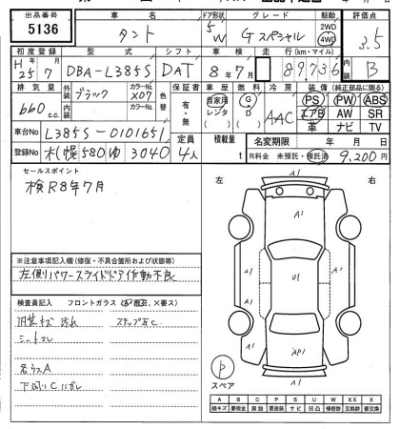 出品番号 車名 ドア形状 グレード 駆動 評価点
5136 タント 5 W Gスペシャル 2WD 4WD 3.5
初度登録 型式 シフト 車検 走行(km・マイル) 内装
H 25年 7月 DBA-L385S DAT 8年7月 89,736 B
排気量 外装 ブラック カラーNo. X07 色替 保証書 車歴 燃料 冷房 装備(純正部品に限る)
660 c.c. 内装 カラーNo. 有・無 自家用 レンタ ( ) G D ( ) AAC PS PW ABS
エアB AW SR
革 ナビ TV
車台No L385S-0101651 定員 積載量 名変期限 月 日
登録No 札幌 580 ゆ 3040 4人 t R料金 未預託・預託済 9,200円
セールスポイント
検R8年7月
左 右
※注意事項記入欄(修復・不具合箇所および状態等)
左側パワースライドドア作動不良
検査員記入 フロントガラス
内装キズ 汚れ ステップ左C
シートスレ
各ラスA
下廻りC
A1
A1
A1
A1
A1
U1
AP1
A1
P
スペア
A B C P S U W X XX